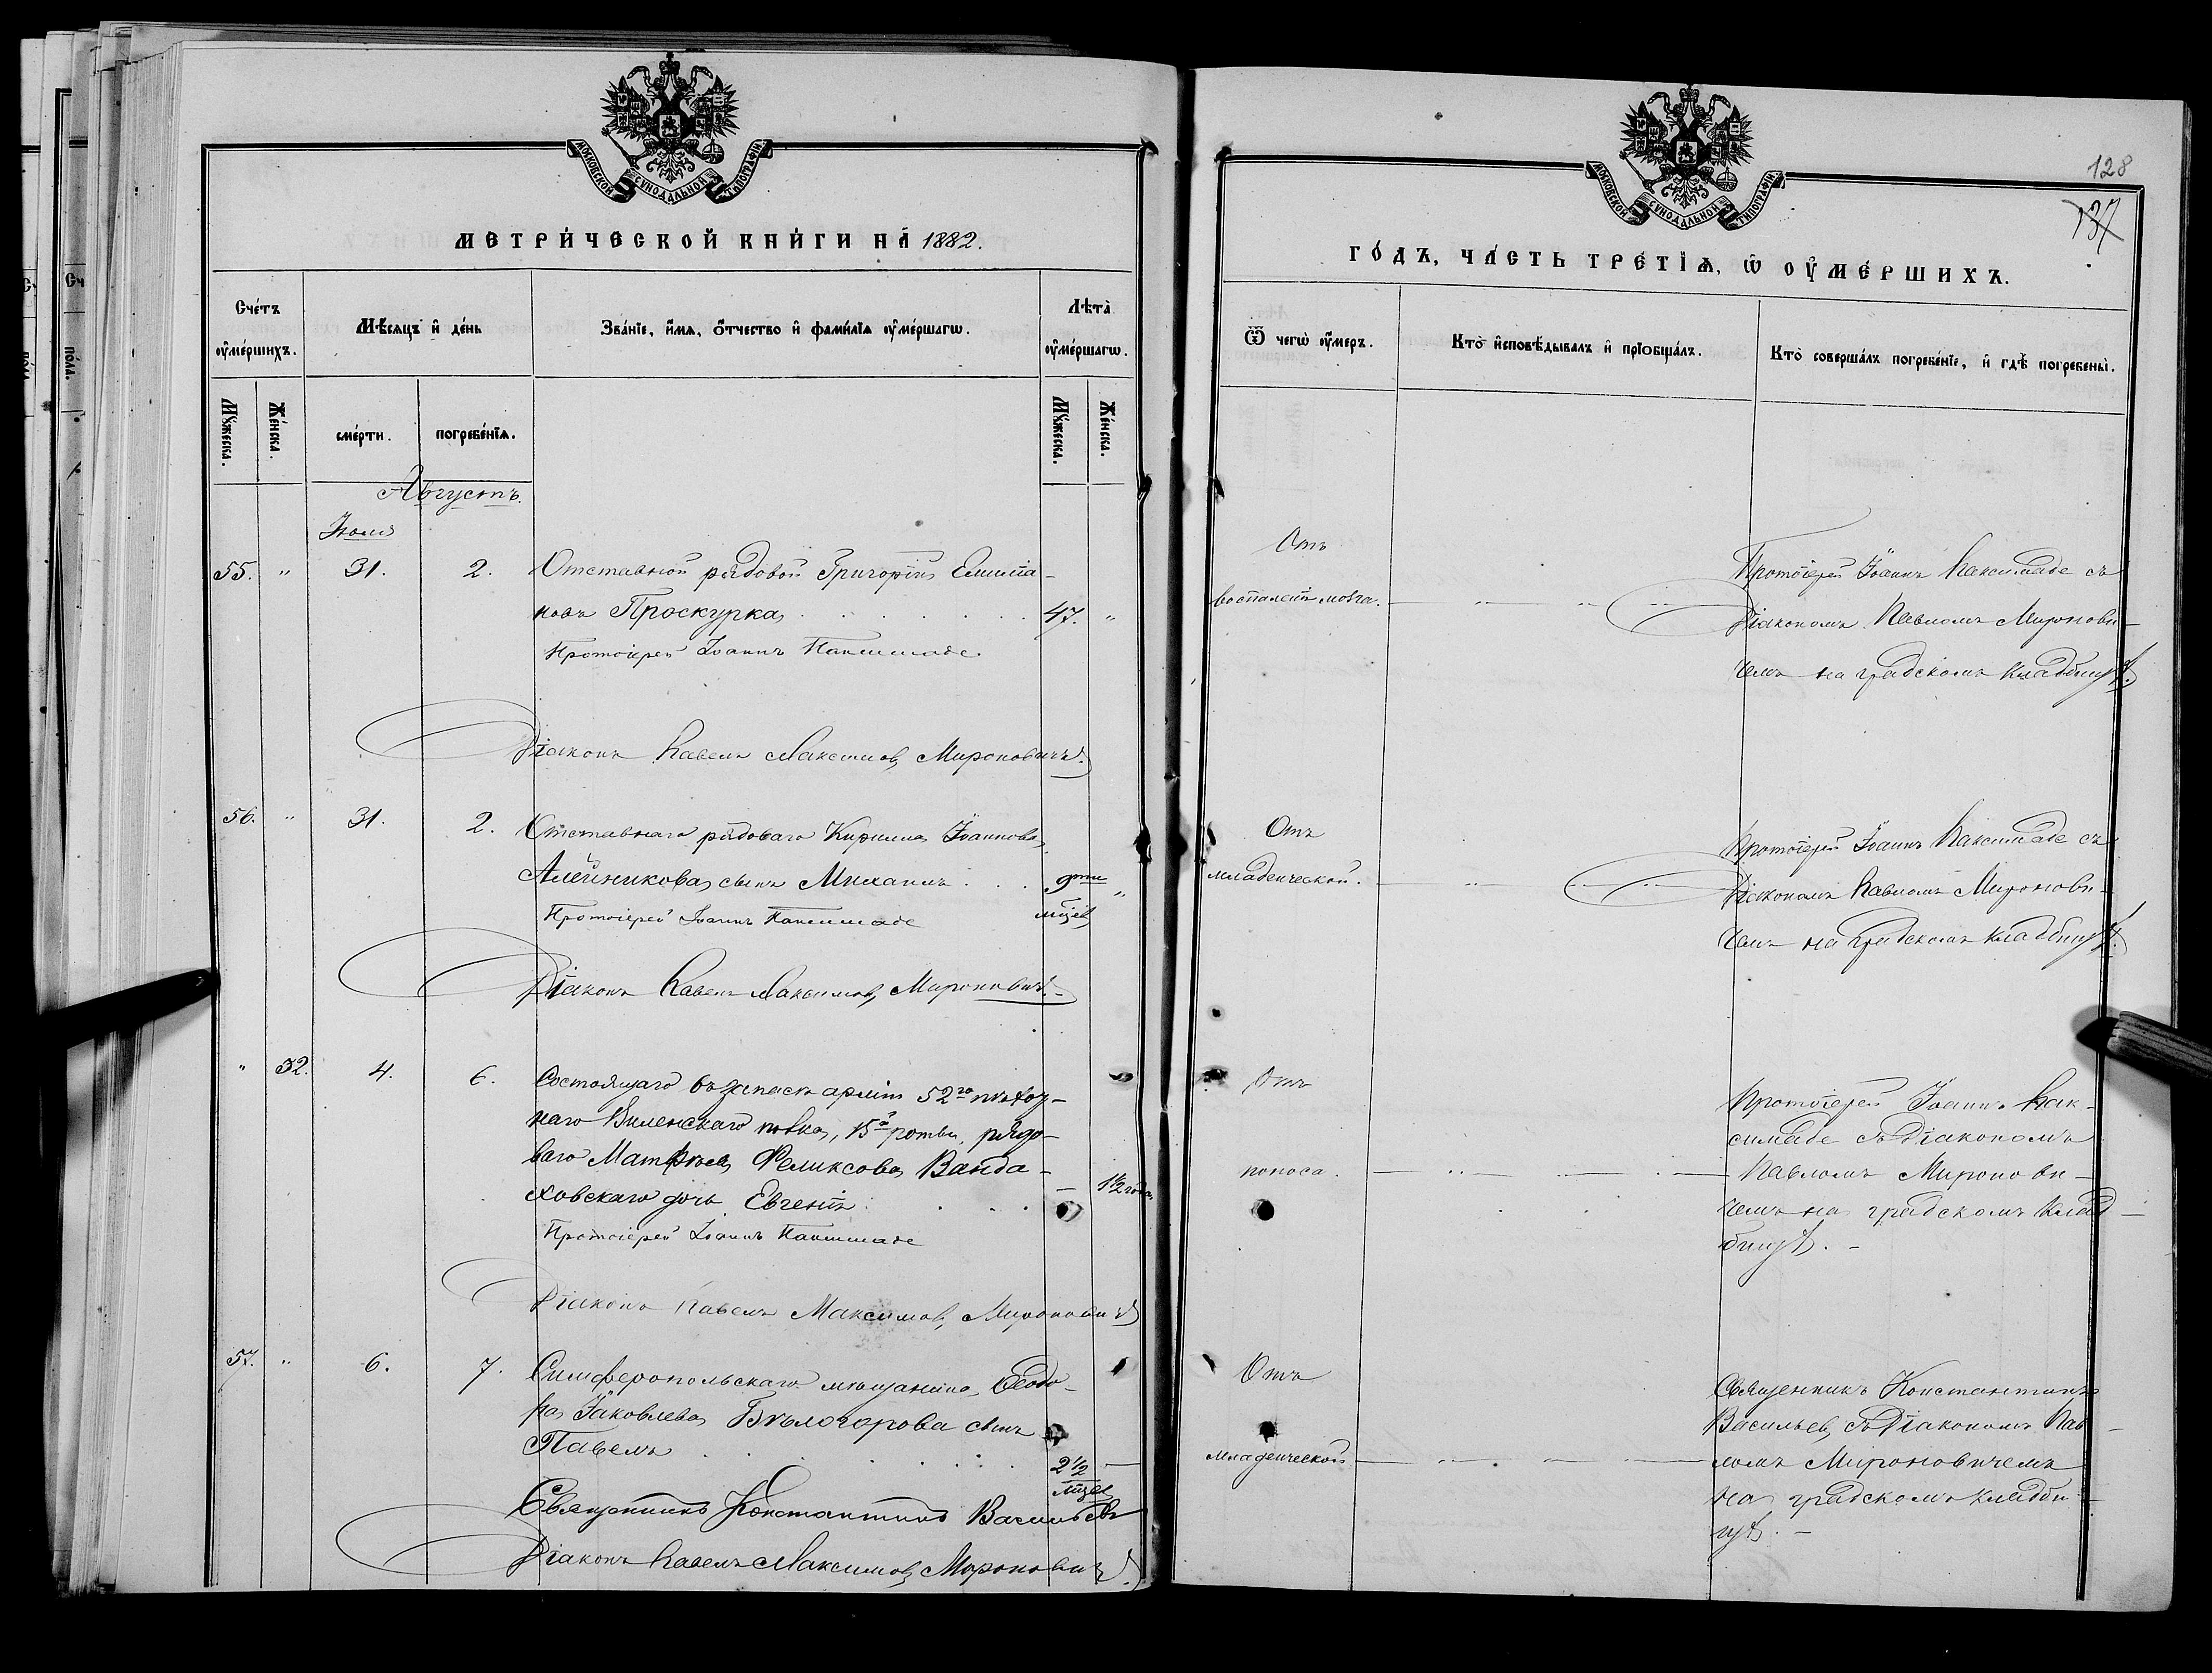 МОСКОВСКОЙ СѴНОДАЛЬНОЙ ТИПОГРАФІИ
МЕТРИ́ЧЕСКОЙ КНИ́ГИ НА̀ 1882.
Сче́тъ ᲂу҆ме́ршихъ.
Мѣ́сяцъ и҆ де́нь
Зва́нїе, и҆́мѧ, ѻ҆́тчество и҆ фами́лїѧ ᲂу҆ме́ршагѡ.
Лѣ̑та ᲂу҆ме́ршагѡ.
Мꙋ́жеска.
Же́нска.
сме́рти.
погребе́нїѧ.
Мꙋ́жеска.
Же́нска.
Августъ.
Іюля
55. " 31. 2. Отставной рядовой Григорій Емилiа-
новъ Проскурка . . . . . . 47. "
Протоіерей Іоаннъ Паксимаде
Діаконъ Павелъ Максимовъ Мироновичъ.
56. " 31. 2. Отставнаго рядоваго Кирилла Іоаннова
Алейникова сынъ Михаилъ . . . 9ти мцев "
Протоіерей Іоаннъ Паксимаде
Діаконъ Павелъ Максимовъ Мироновичъ.
" 32. 4. 6. Состоящаго въ запасѣ арміи 52го пѣхот-
наго Виленскаго полка, 15й роты, рядо-
ваго Матѳѣя Феликсова Ванда-
ховскаго дочь Евгенія . . . — 1½ года
Протоіерей Іоаннъ Паксимаде
Діаконъ Павелъ Максимовъ Мироновичъ
57. " 6. 7. Симферопольскаго мѣщанина Ѳеодо-
ра Іаковлева Бѣлогорова сынъ
Павелъ . . . . . . 2½ мцев —
Священникъ Константинъ Васильевъ
Діаконъ Павелъ Максимовъ Мироновичъ.
МОСКОВСКОЙ СѴНОДАЛЬНОЙ ТИПОГРАФІИ
128
137
ГО́ДЪ, ЧА́СТЬ ТРЕ́ТЇѦ, Ѡ҆ ОУ҆МЕ́РШИХЪ.
Ѿ чегѡ̀ ᲂу҆́меръ.
Кто̀ и҆сповѣ́дывалъ и҆ прїѻбща́лъ.
Кто̀ соверша́лъ погребе́нїе, и҆ гдѣ̀ погребены̀.
Отъ
воспаленія мозга.
Протоіерей Іоаннъ Паксимаде съ
Діакономъ Павломъ Миронови-
чемъ на градскомъ кладбищѣ.
Отъ
младенческой.
Протоіерей Іоаннъ Паксимаде съ
Діакономъ Павломъ Миронови-
чемъ на градскомъ кладбищѣ.
Отъ
поноса.
Протоіерей Іоаннъ Пак-
симаде съ Діакономъ
Павломъ Миронови-
чемъ на градскомъ клад-
бищѣ.
Отъ
младенческой
Священникъ Константинъ
Васильевъ съ Діакономъ Пав-
ломъ Мироновичемъ
на градскомъ кладби-
щѣ.